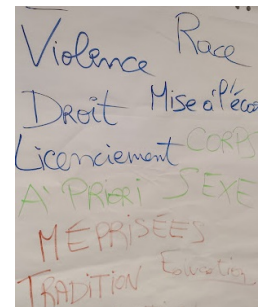 Violence Race
Droit Mise à l'éca
Licenciement CORPS
A' PRIORI SEXE
MÉPRISÉES
TRADITION Education